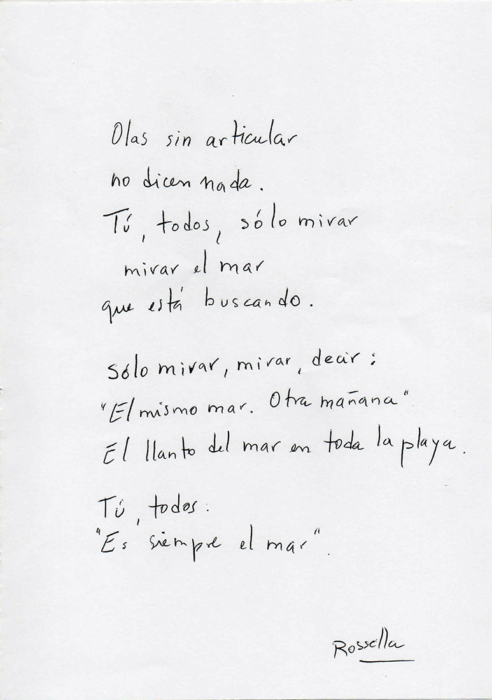 Olas sin articular
no dicen nada.
Tú, todos, sólo mirar
mirar el mar
que está buscando.
Sólo mirar, mirar, decir:
"El mismo mar. Otra mañana"
El llanto del mar en toda la playa.
Tú, todos:
"Es siempre el mar".
Rossella